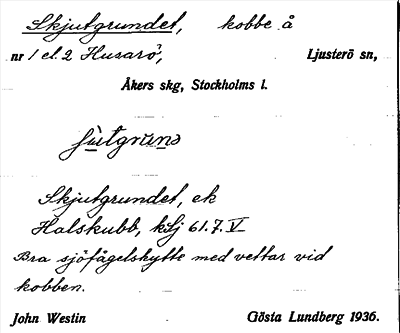 Skjutgrundet, kobbe å
nr 1 el. 2 Husarö, Ljusterö sn,
Åkers skg, Stockholms l.
Skjutgrundet, ek
Halskubb, kSj 61.7. V
Bra sjöfågelskytte med vettar vid
kobben.
John Westin Gösta Lundberg 1936.